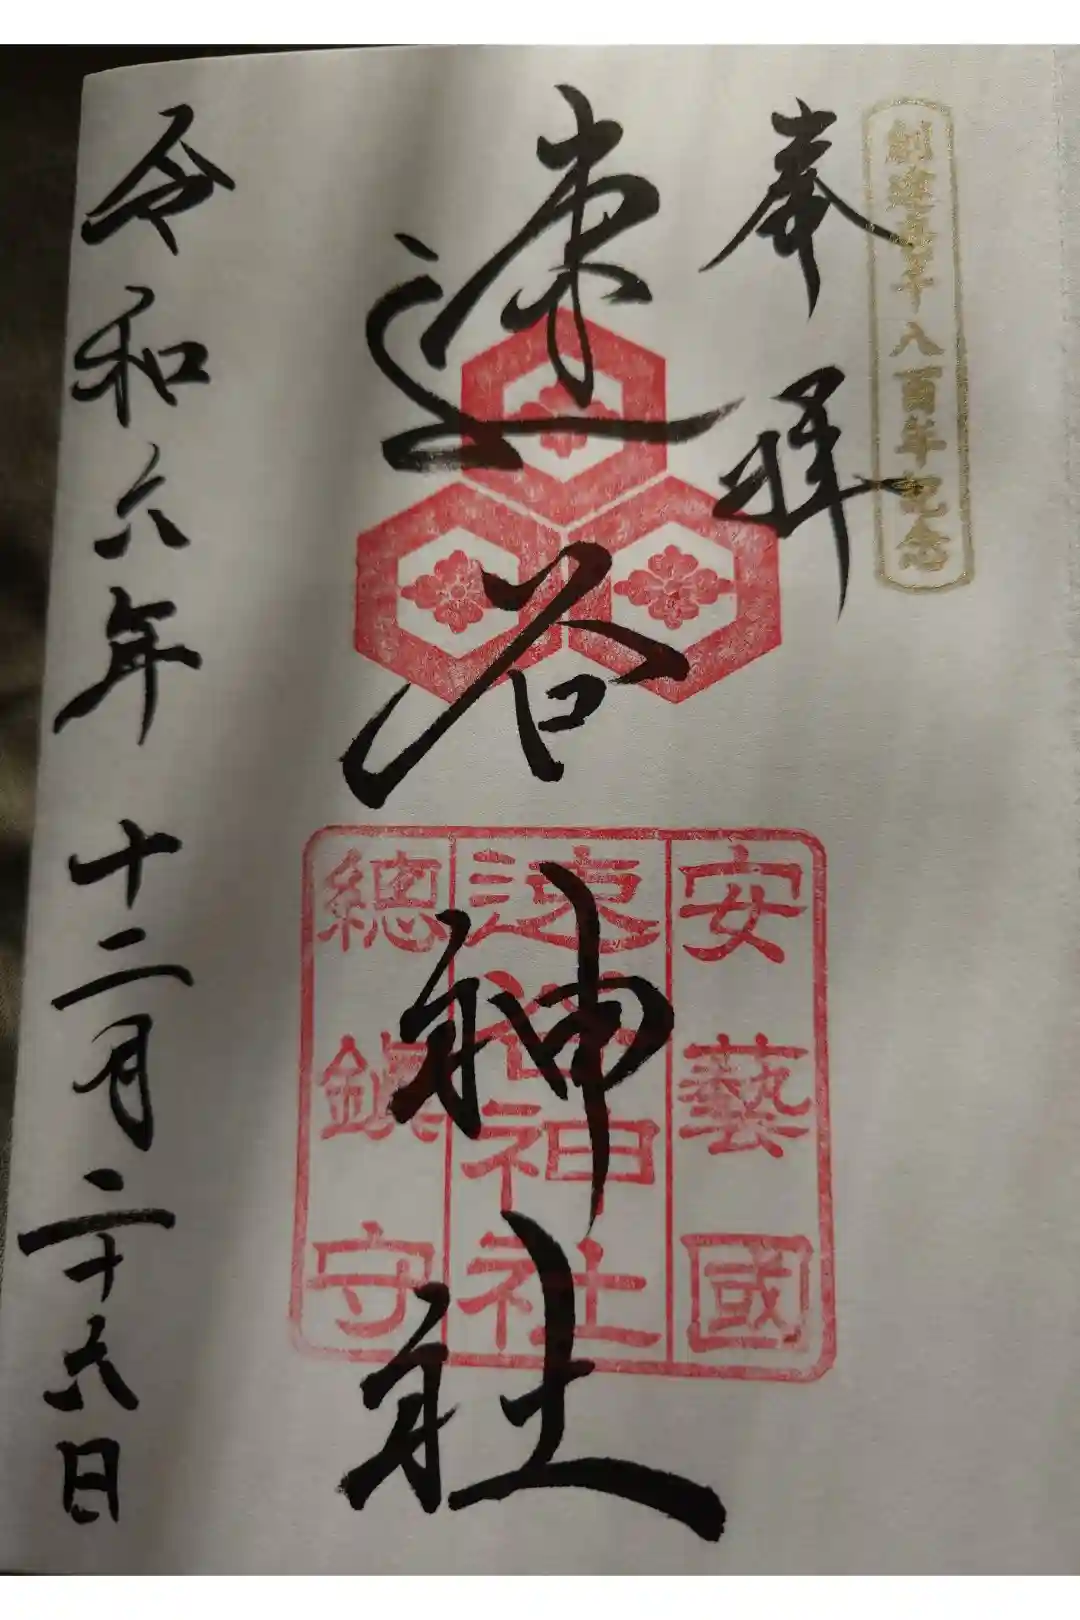 創建千八百年記念
奉拝
速谷神社
安藝國
速谷神社
總鎮守
令和六年十二月二十六日